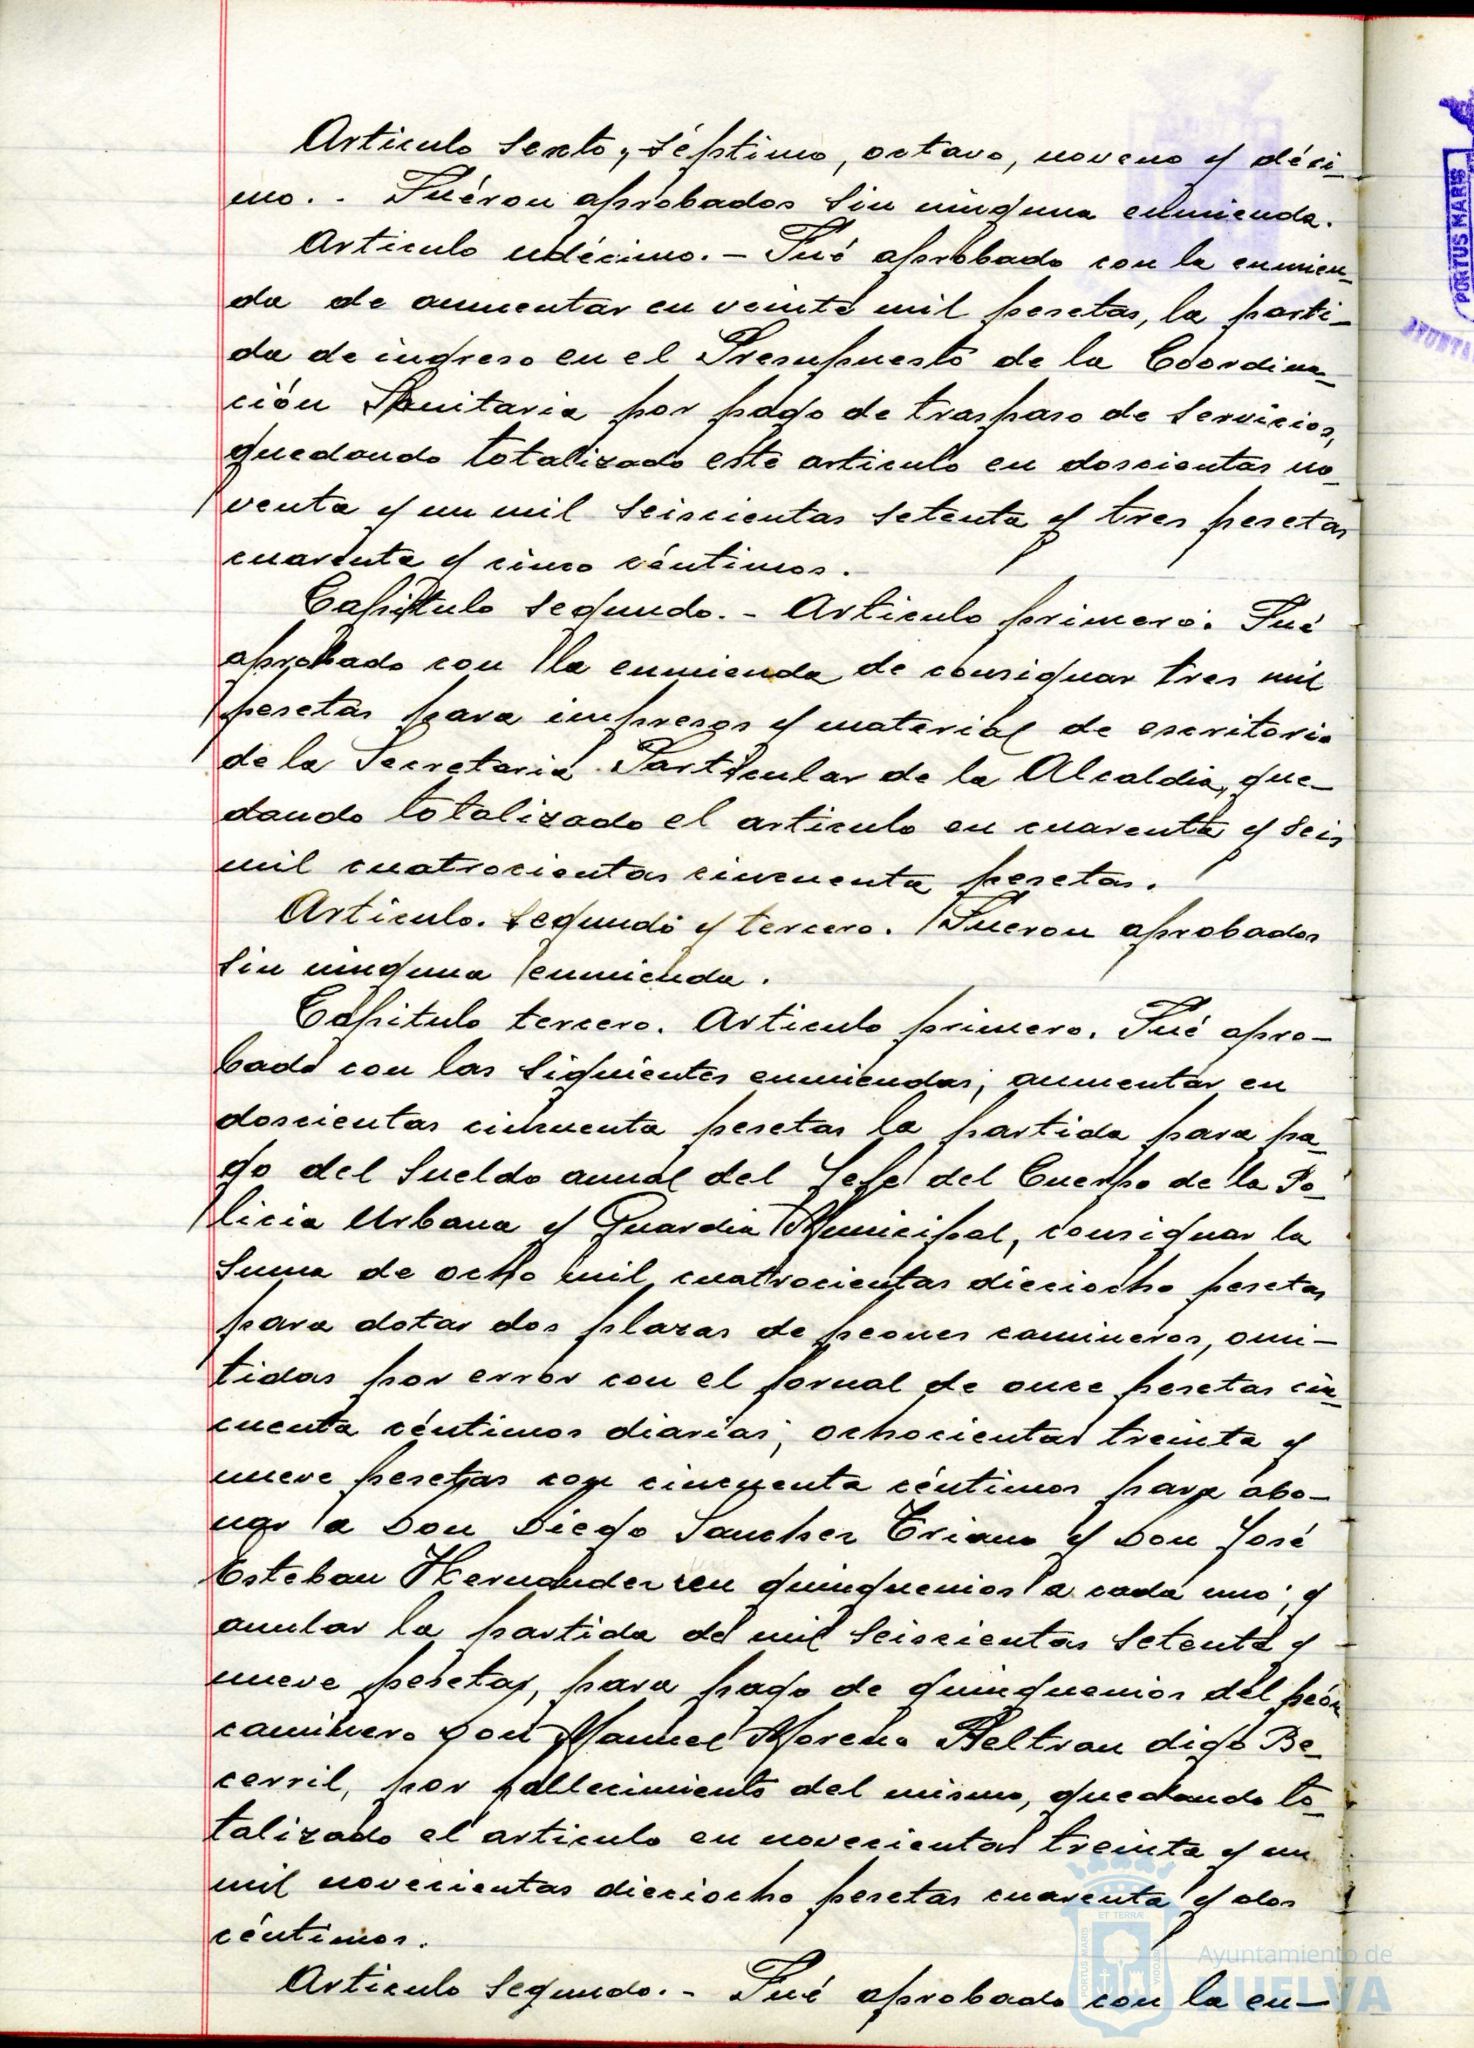 Articulo sexto, séptimo, octavo, noveno y déci-
mo.. Fuéron aprobados sin ninguna enmienda.
Articulo undécimo.- Fué aprobado con la enmien-
da de aumentar en veinte mil pesetas, la parti-
da de ingreso en el Presupuesto de la Coordina-
ción Sanitaria por pago de traspaso de servicios,
quedando totalizado este articulo en doscientas no-
venta y un mil seiscientas setenta y tres pesetas
cuarenta y cinco céntimos.
Capitulo segundo.- Articulo primero: Fué
aprobado con la enmienda de consignar tres mil
pesetas para impresos y material de escritorio
de la Secretaria Particular de la Alcaldia, que-
dando totalizado el articulo en cuarenta y seis
mil cuatrocientas cincuenta pesetas.
Articulo. segundo y tercero. Fueron aprobados
sin ninguna enmienda.
Capitulo tercero. Articulo primero. Fué apro-
bado con las siguientes enmiendas; aumentar en
doscientas cincuenta pesetas la partida para pa-
go del sueldo anual del Jefe del Cuerpo de la Po-
licia Urbana y Guardia Municipal, consignar la
suma de ocho mil cuatrocientas dieciocho pesetas
para dotar dos plazas de peones camineros, omi-
tidas por error con el jornal de once pesetas cin-
cuenta céntimos diarias; ochocientas treinta y
nueve pesetas con cincuenta céntimos para abo-
nar a Don Diego Sanchez Triano y Don José
Esteban Hernandez en quinquenios a cada uno; y
anular la partida de mil seiscientas setenta y
nueve pesetas, para pago de quinquenios del peón
caminero Don Manuel Moreno Beltran digo Be-
cerril, por fallecimiento del mismo, quedando to-
talizado el articulo en novecientas treinta y un
mil novecientas dieciocho pesetas cuarenta y dos
céntimos.
Articulo segundo.- Fué aprobado con la en-
PORTUS MARIS
AYUNTA
ET TERRÆ
PORTUS MARIS
Ayuntamiento de
HUELVA